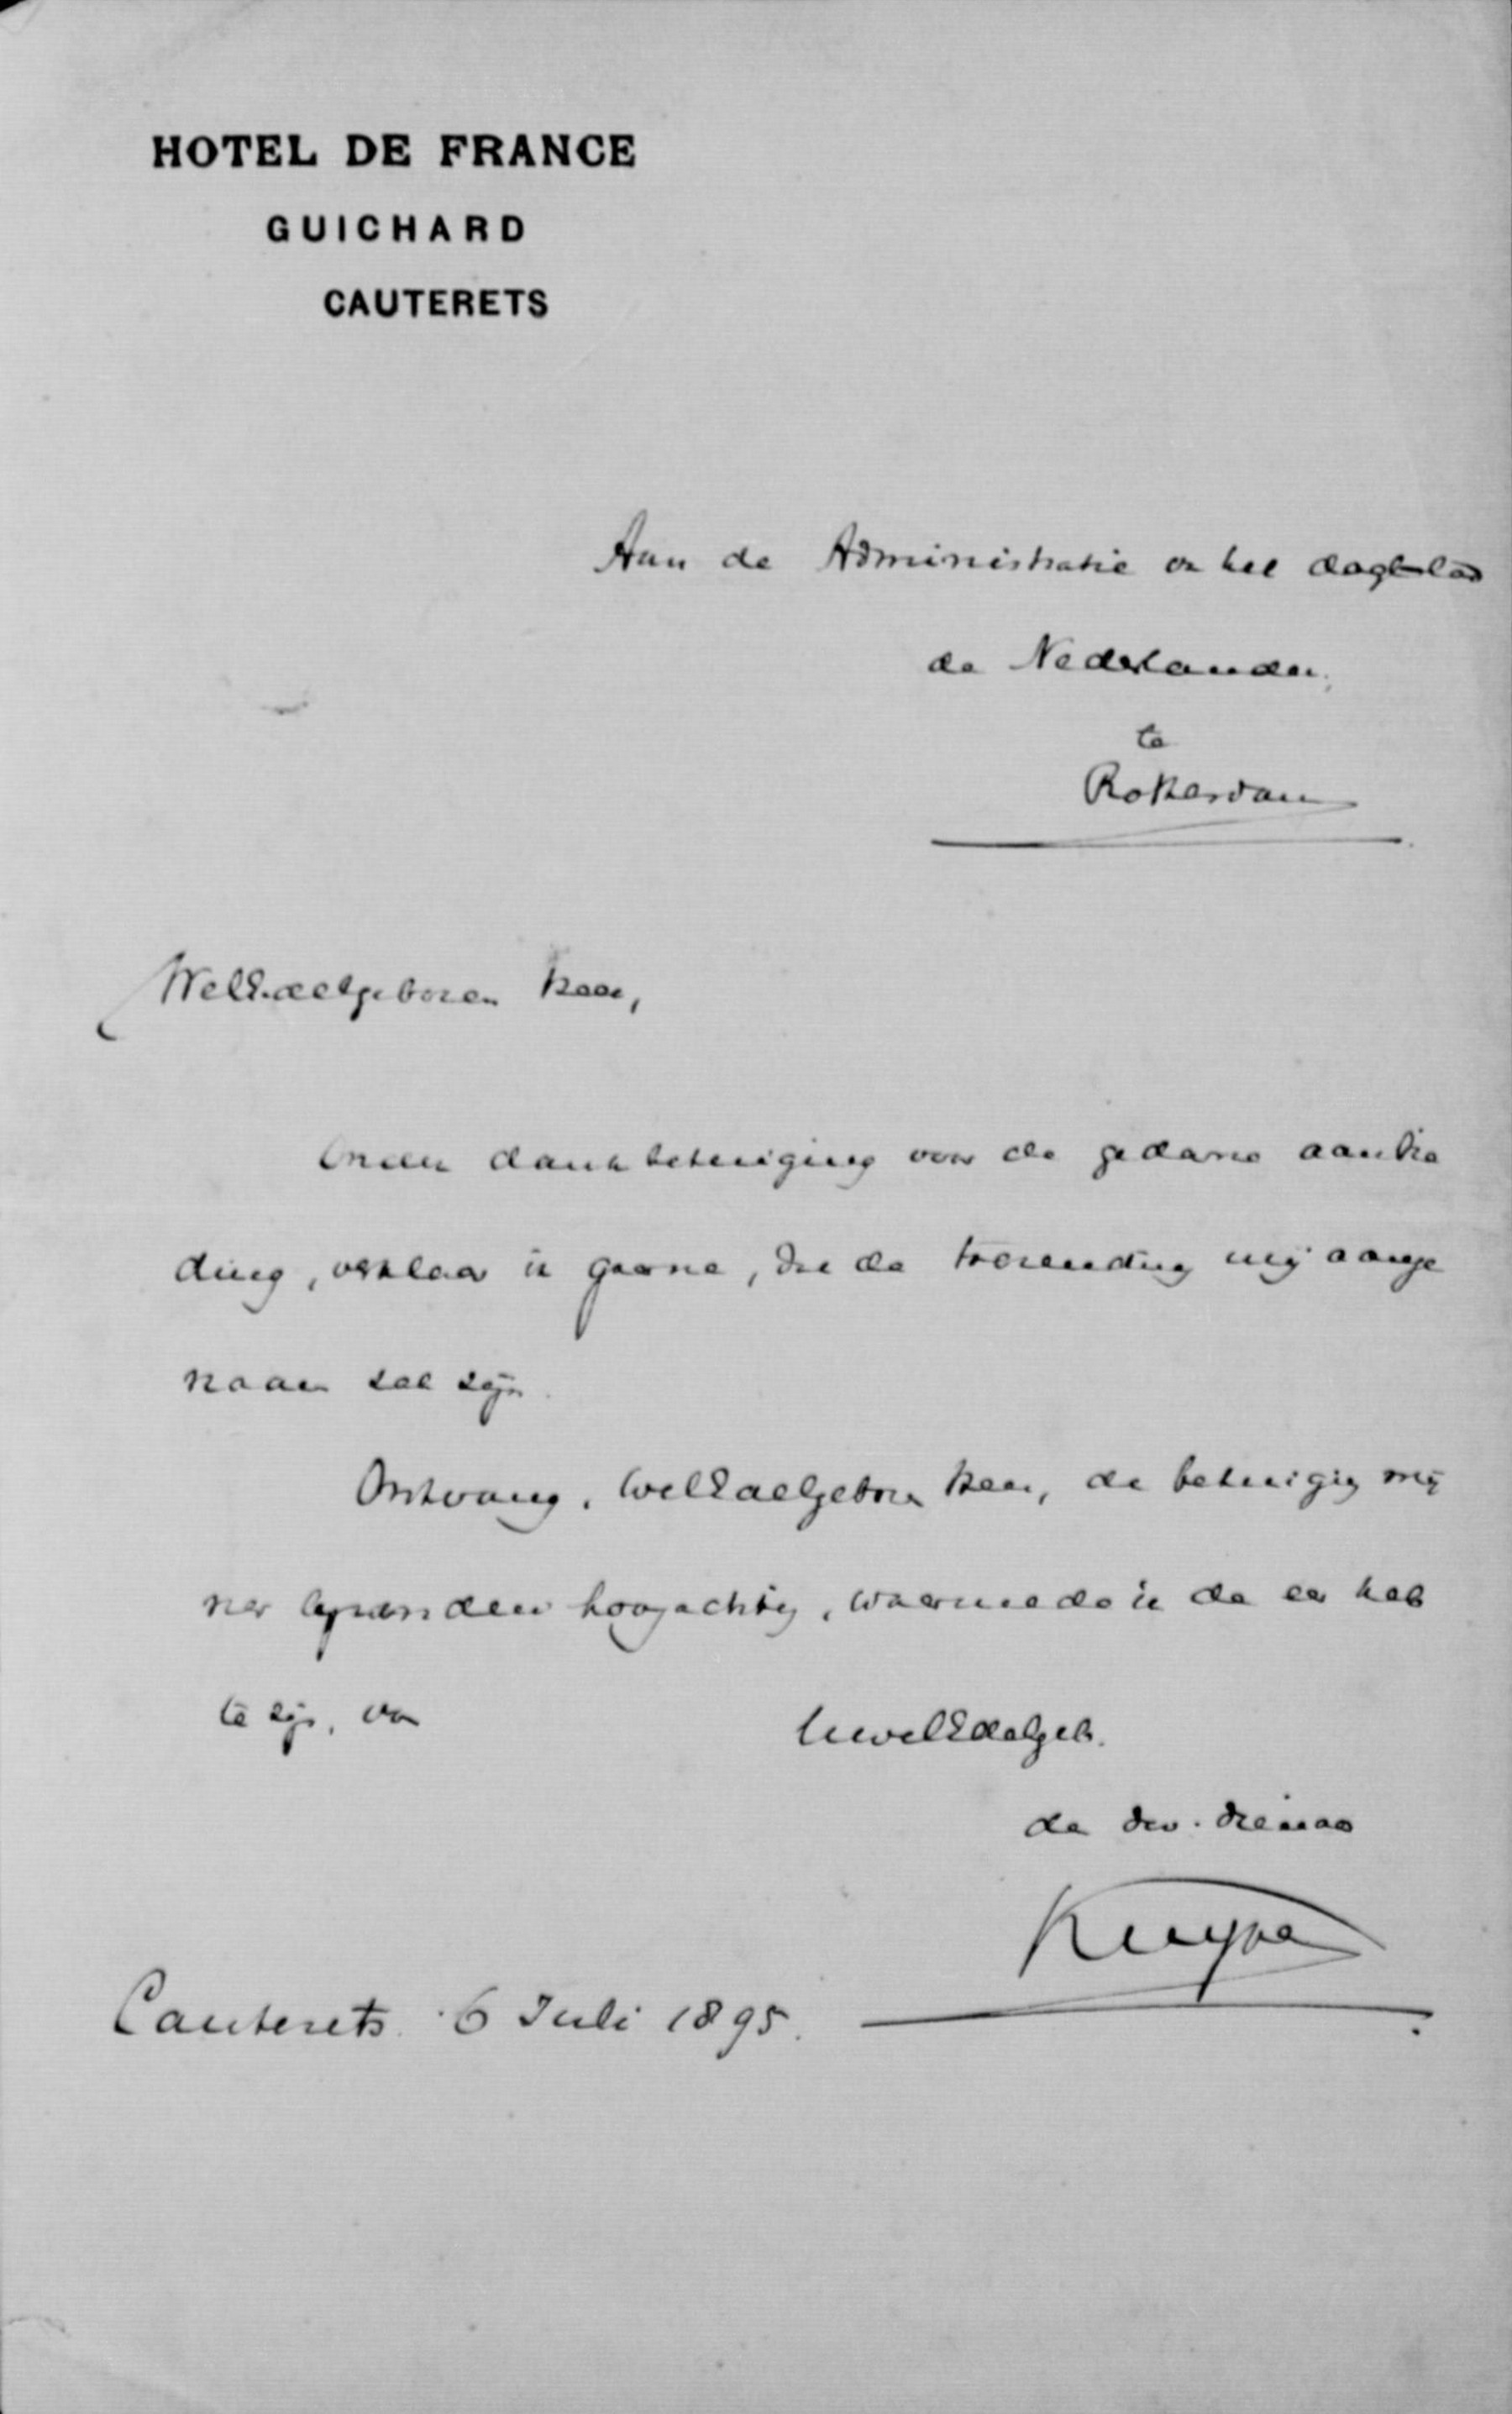 HOTEL DE FRANCE
GUICHARD
CAUTERETS
Aan de Administratie van het dagblad
de Nederlander,
te
Rotterdam
WelEdelgeboren heer,
Onder dankbetuiging voor de gedane aanbie
ding, verklaar ik gaarne, dat de toezending mij aange
naam zal zijn.
Ontvang, WelEdelgeboren heer, de betuiging mij
ner hoogachting, waarmede ik de eer heb
te zijn, van
UwelEdelgeb.
de dw. dienaar
Kuyper
Cauterets. 6 Juli 1895.